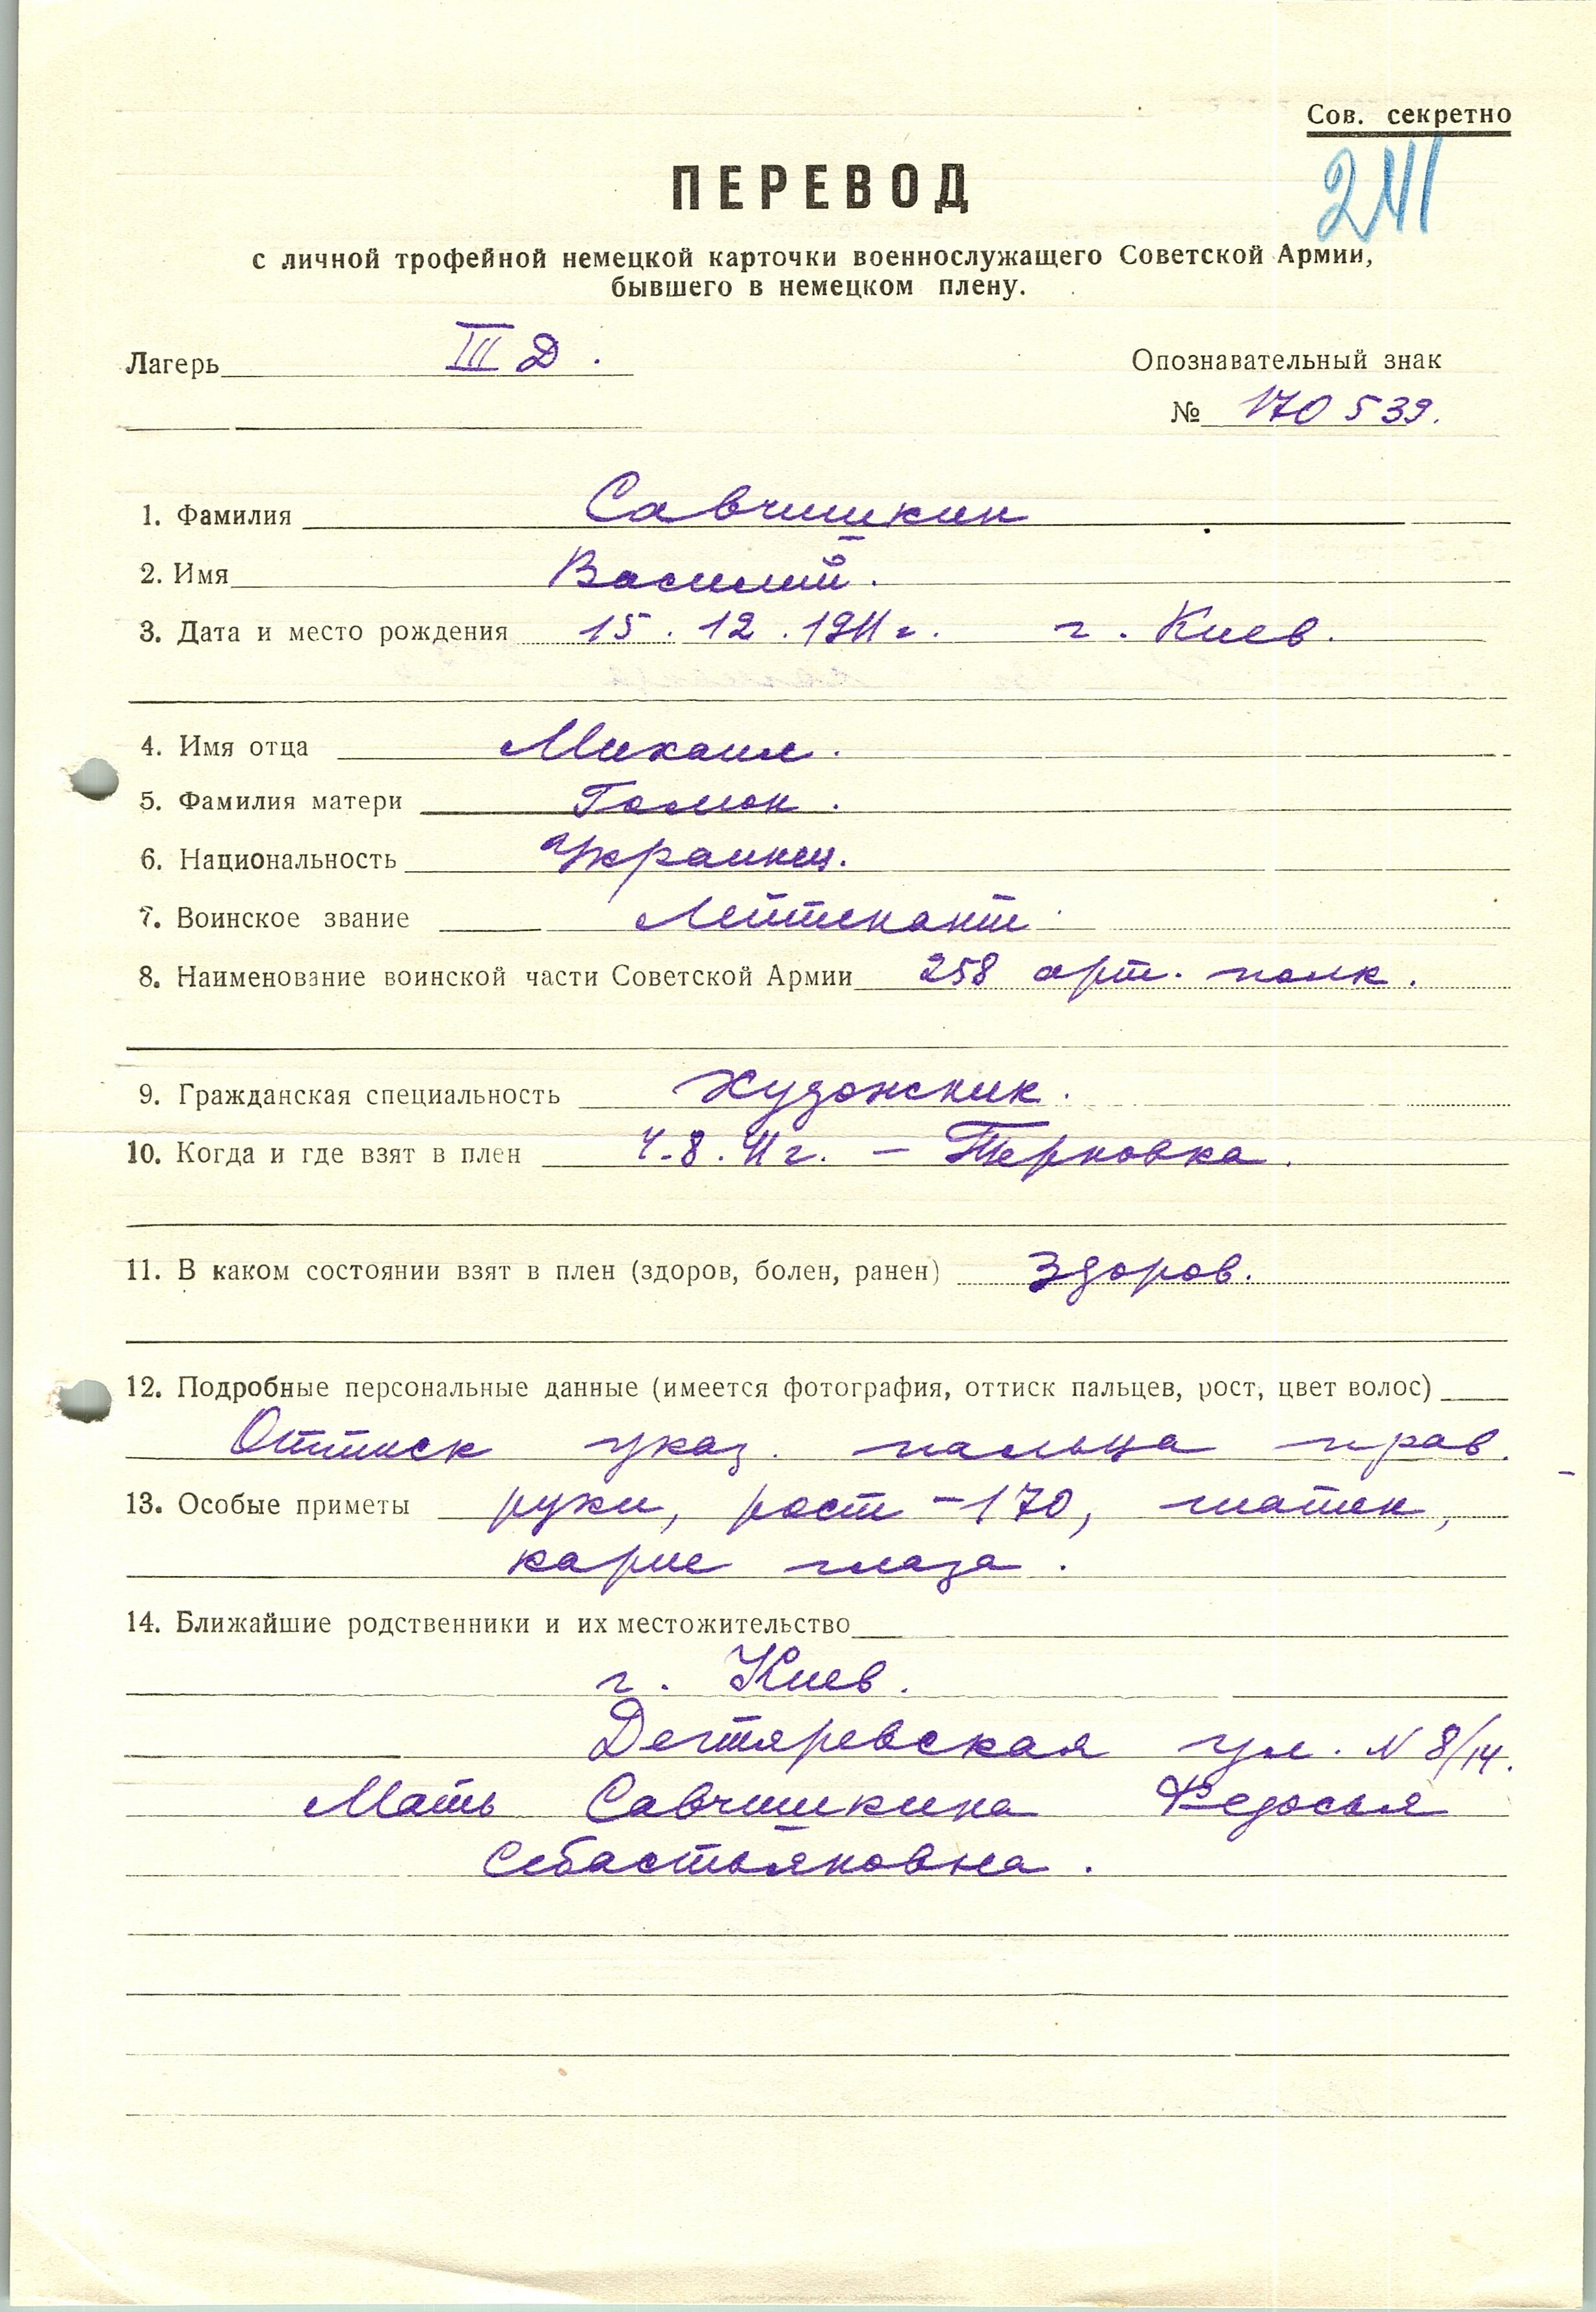 Сов. секретно
241
ПЕРЕВОД
с личной трофейной немецкой карточки военнослужащего Советской Армии,
бывшего в немецком плену.
Лагерь III Д. Опознавательный знак
№ 170539.
1. Фамилия Савчишкин
2. Имя Василий.
3. Дата и место рождения 15.12.1911г. г. Киев.
4. Имя отца Михаил.
5. Фамилия матери
6. Национальность Украинец.
7. Воинское звание Лейтенант.
8. Наименование воинской части Советской Армии 258 арт. полк.
9. Гражданская специальность Художник.
10. Когда и где взят в плен 4.8.41г. — Терновка.
11. В каком состоянии взят в плен (здоров, болен, ранен) Здоров.
12. Подробные персональные данные (имеется фотография, оттиск пальцев, рост, цвет волос)
Оттиск указ. пальца прав.
13. Особые приметы руки, рост - 170, шатен,
карие глаза.
14. Ближайшие родственники и их местожительство
г. Киев.
Дегтяревская ул. N 8/14.
Мать Савчишкина Федосья
Себастьяновна.